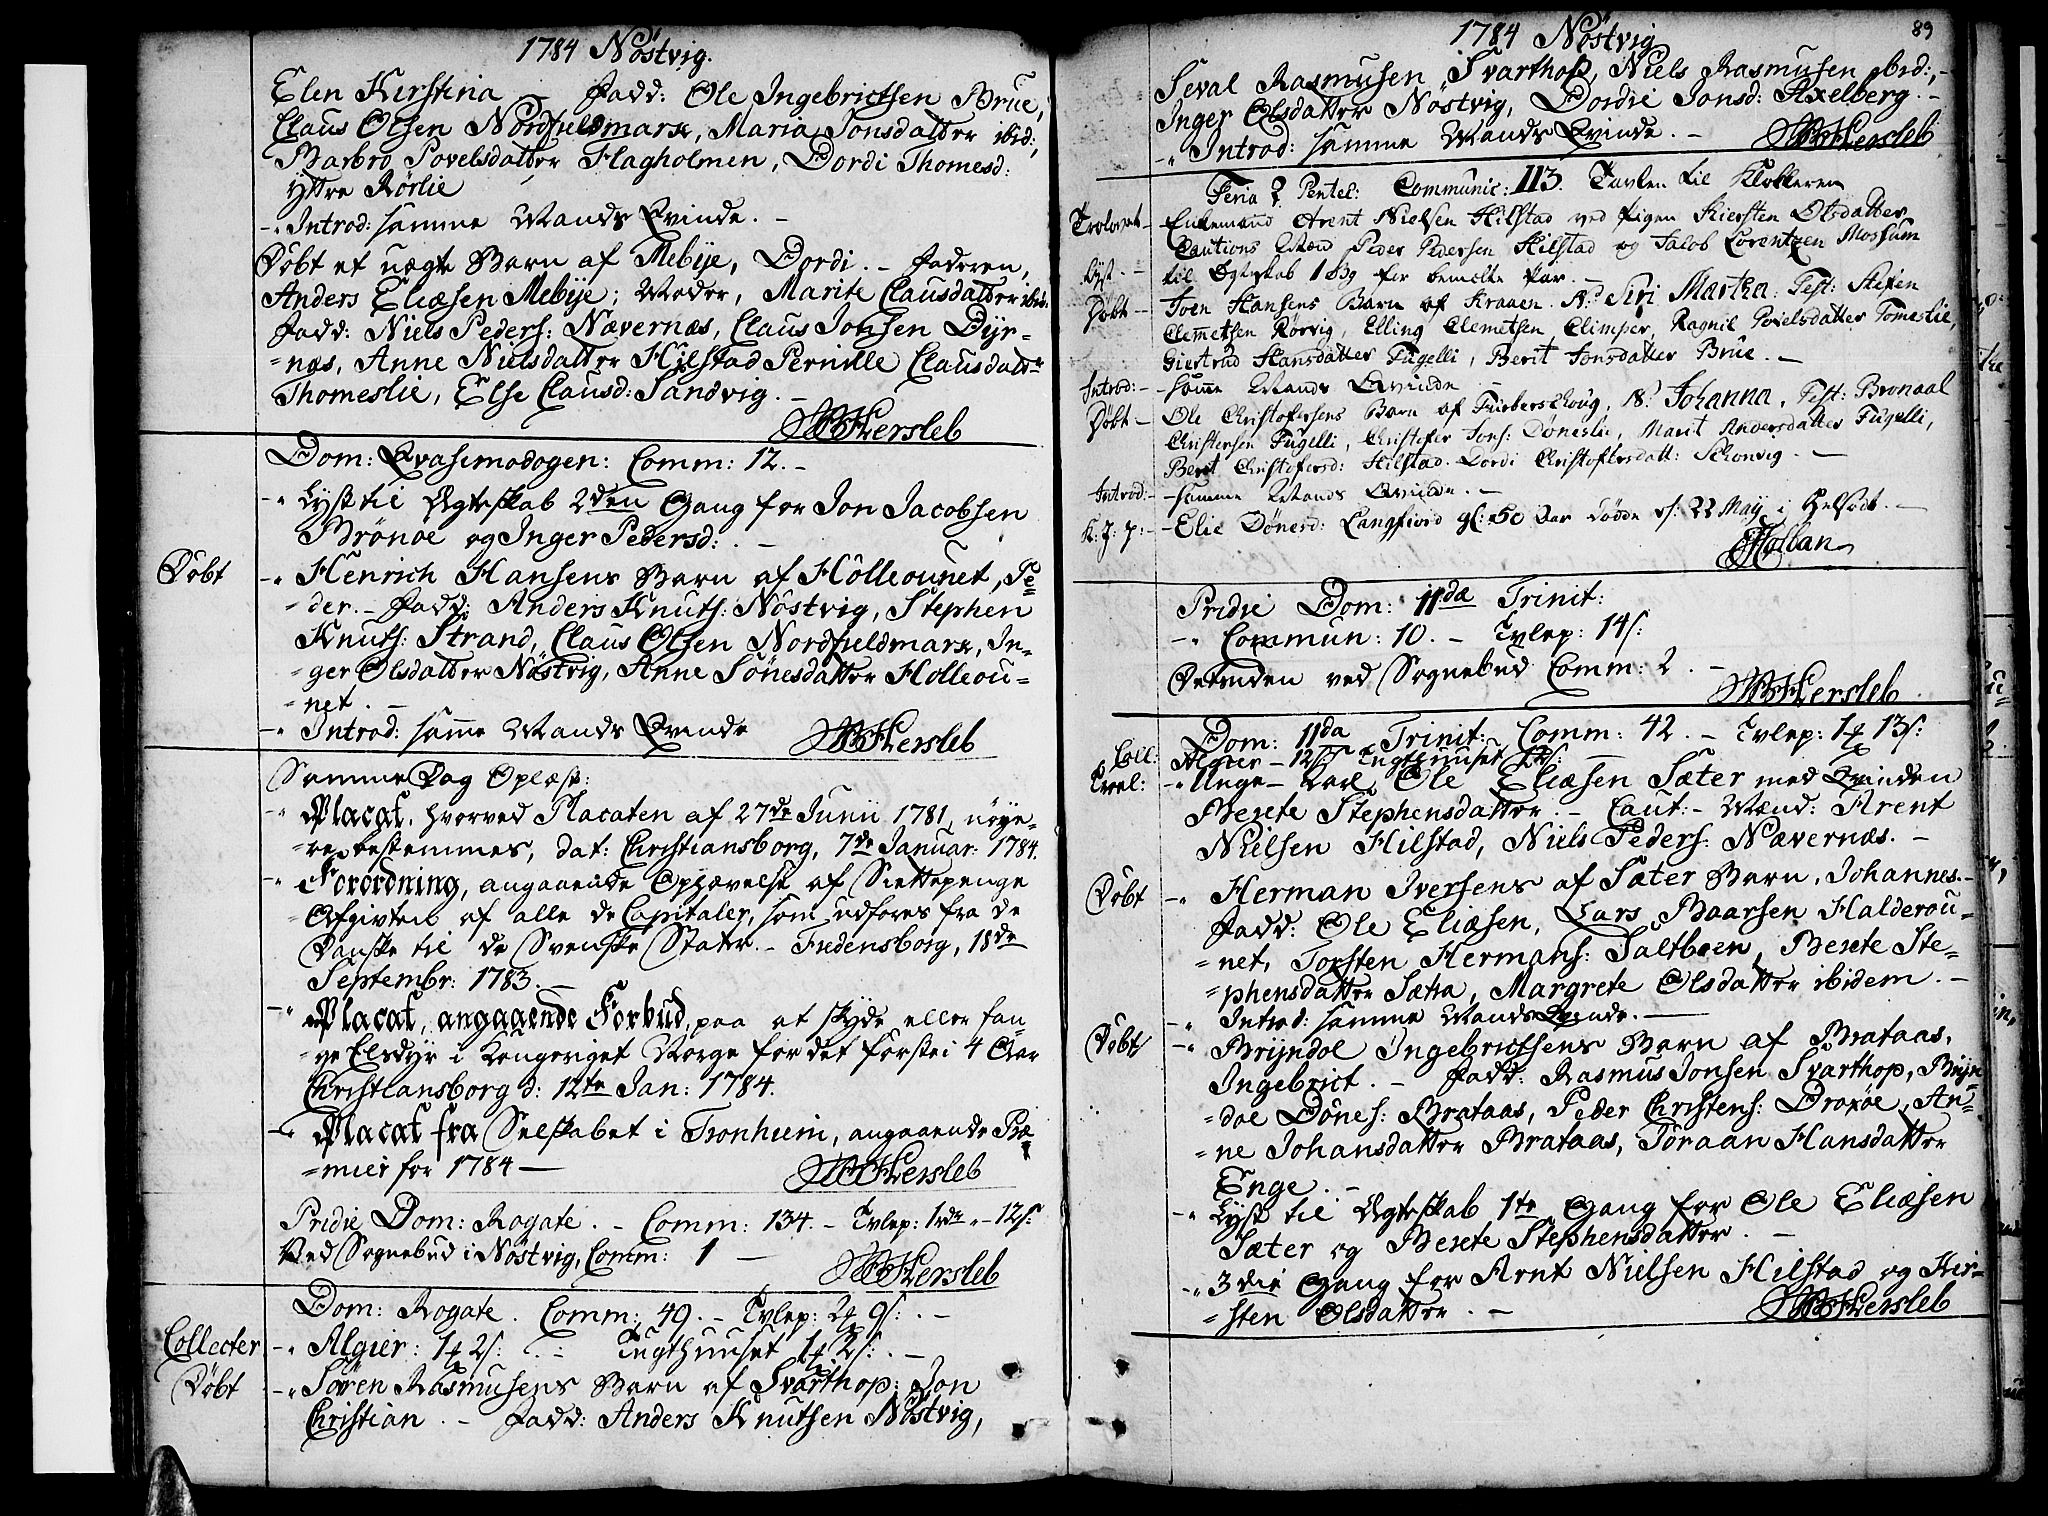 1784 Nöstvig.
Elen Kirstina – Fadd: Ole Ingebrictsen Brue,
Claus Olsen Nordfieldmark, Maria Jonsdatter ibid:,
Barbro Povelsdatter Flagholmen, Dordi Thomesd:
yttre Rörlie
-" Introd: samme Mands Qvinde. –
Döbt et uægte Barn af Mebye, Dordi. – Faderen,
Anders Eliæsen Mebÿe; Moder, Marite Clausdatter ibid:
Fadd: Niels Peders: Nævernæs, Claus Jonsen Dyr-
=næs, Anne Nielsdatter Hilstad Pernille Clausdattr
Thomeslie, Else Clausd: Sandvig. –
Hersleb
Dom: Qvasimodogen: Comm: 12. –
-" Lyst til Ægteskab 2den Gang for Jon Jacobsen
Brönöe og Inger Pedersd: . –
Döbt -" Henrich Hansens Barn af Hölleounet, Pe=
=der. – Fadd: Anders Knuts: Nöstvig, Stephen
Knuts: Strand, Claus Olsen Nordfieldmark, In=
=ger Olsdatter Nöstvig, Anne Sönesdatter Holleou=
=net. –
-" Introd: samme Mands Qvinde Hersleb
Samme Dag Oplæst:
-" Placat, hvorved Placaten af 27de Junii 1781, nöye=
=re bestemmes, dat: Christiansborg, 7de Januar: 1784.
-" Forordning, angaaende Ophævelse af Siettepenge
Afgivten af alle de Capitaler, som udföres fra de
Danske til de Svenske Stater. – Fredensborg, 18de
Septembr: 1783. –
-" Placat, angaaende Forbud, paa at skyde eller fan=
=ge Elsdyr i Kongeriget Norge for det förste i 4 Aar
Christiansborg d: 12te Jan: 1784.
-" Placat fra Selskabet i Tronhiem, angaaende Præ=
=mier for 1784 – Hersleb
Pridie Dom: Rogate. – Comm: 134. – Tvlep: 1rdr " – 12s:
Ved Sognebud i Nöstvig, Comm: 1 –
Hersleb
Dom: Rogate. Comm: 49. – Tvlep: 2 9s: . –
Collecter -" Algier: 1 2s: . – Tugthuuset 1 2s: . –
Döbt -" Sören Rasmusens Barn af Svarthop: Jon
Christian . – Fadd: Anders Knutsen Nöstvig,
89
1784 Nöstvig
Seval Rasmusen Svarthop, Niels Rasmusen ibid:, –
Inger Olsdatter Nöstvig, Dordie Jonsd: Axelberg. –
-" Introd: samme Mands Qvinde. – Hersleb
Feria 2 Pentec: Communic: 113. Tavlen til Klokkeren
Trolovet – Enkemand Arent Nielsen Hilstad ved Pigen Kiersten Olsdatter
Cautions Mænd Peder Pedersen Hilstad og Jacob Lorentzen Mosium
Lyst. – til Ægteskab 1 Gg for bemelte Par. –
Döbt – Joen Hansens Barn af Kraaen. N: Siri Martha. Test: Steffen
Clemmetsen Rörvig, Elling Clemetsen Climper, Ragnil Povelsdatter Tomeslie,
Giertrud Hansdatter Fugelli, Berit Jonsdatter Brue. –
Introd: – samme Mands Qvinde –
Döbt – Ole Christofersens Barn af Furberschoug, N: Johanna. Test: Bronaal
Christensen Fugelli, Christofer Jons: Döneslie, Marit Andersdatter Fugelli,
Berit Christofersd: Hilstad. Dordi Christoffersdatt: Schonvig. –
Introd: – samme Mands Qvinde. –
K: J: P: – Elie Dönesd: Langfiord gl: 50 Aar döde d: 22 May i Helsödt. –
Hollan
Pridie Dom: 11dæ Trinit:
-" Commun: 10. – Tvlep: 14s:
Desuden ved Sognebud Comm: 2. –
Hersleb
Dom: 11da Trinit: Comm: 42. – Tvlep: 1 13s:
Coll: Algier – 12s: Tugthuuset
Troel: -" Unge-Karl Ole Eliæsen Sæter med Qvinden
Berete Stephensdatter. – Caut: – Mænd: Arent
Nielsen Hilstad, Niels Peders: Nævernæs. –
Döbt -" Herman Iversens af Sæter Barn, Johannes. –
Fadd: Ole Eliæsen, Lars Baarsen Halderou=
=net, Torsten Hermans: Saltboen, Berete Ste=
=phensdatter Sætra, Margrete Olsdatter ibidem. –
-" Introd: samme Mands Qvinde. –
Döbt -" Bryndol Ingebrictsens Barn af Brataas,
Ingebrict. – Fadd: Rasmus Jonsen Svarthop, Bryn=
=dol Dönes: Brataas, Peder Christens: Droxöe, An=
=ne Johansdatter Brataas, Toraan Hansdatter
Enge. –
-" Lyst til Ægteskab 1te Gang for Ole Eliæsen
Sæter og Berete Stephensdatter . –
-" 3die Gang for Arnt Nielsen Hilstad og Kir=
=sten Olsdatter . – Hersleb